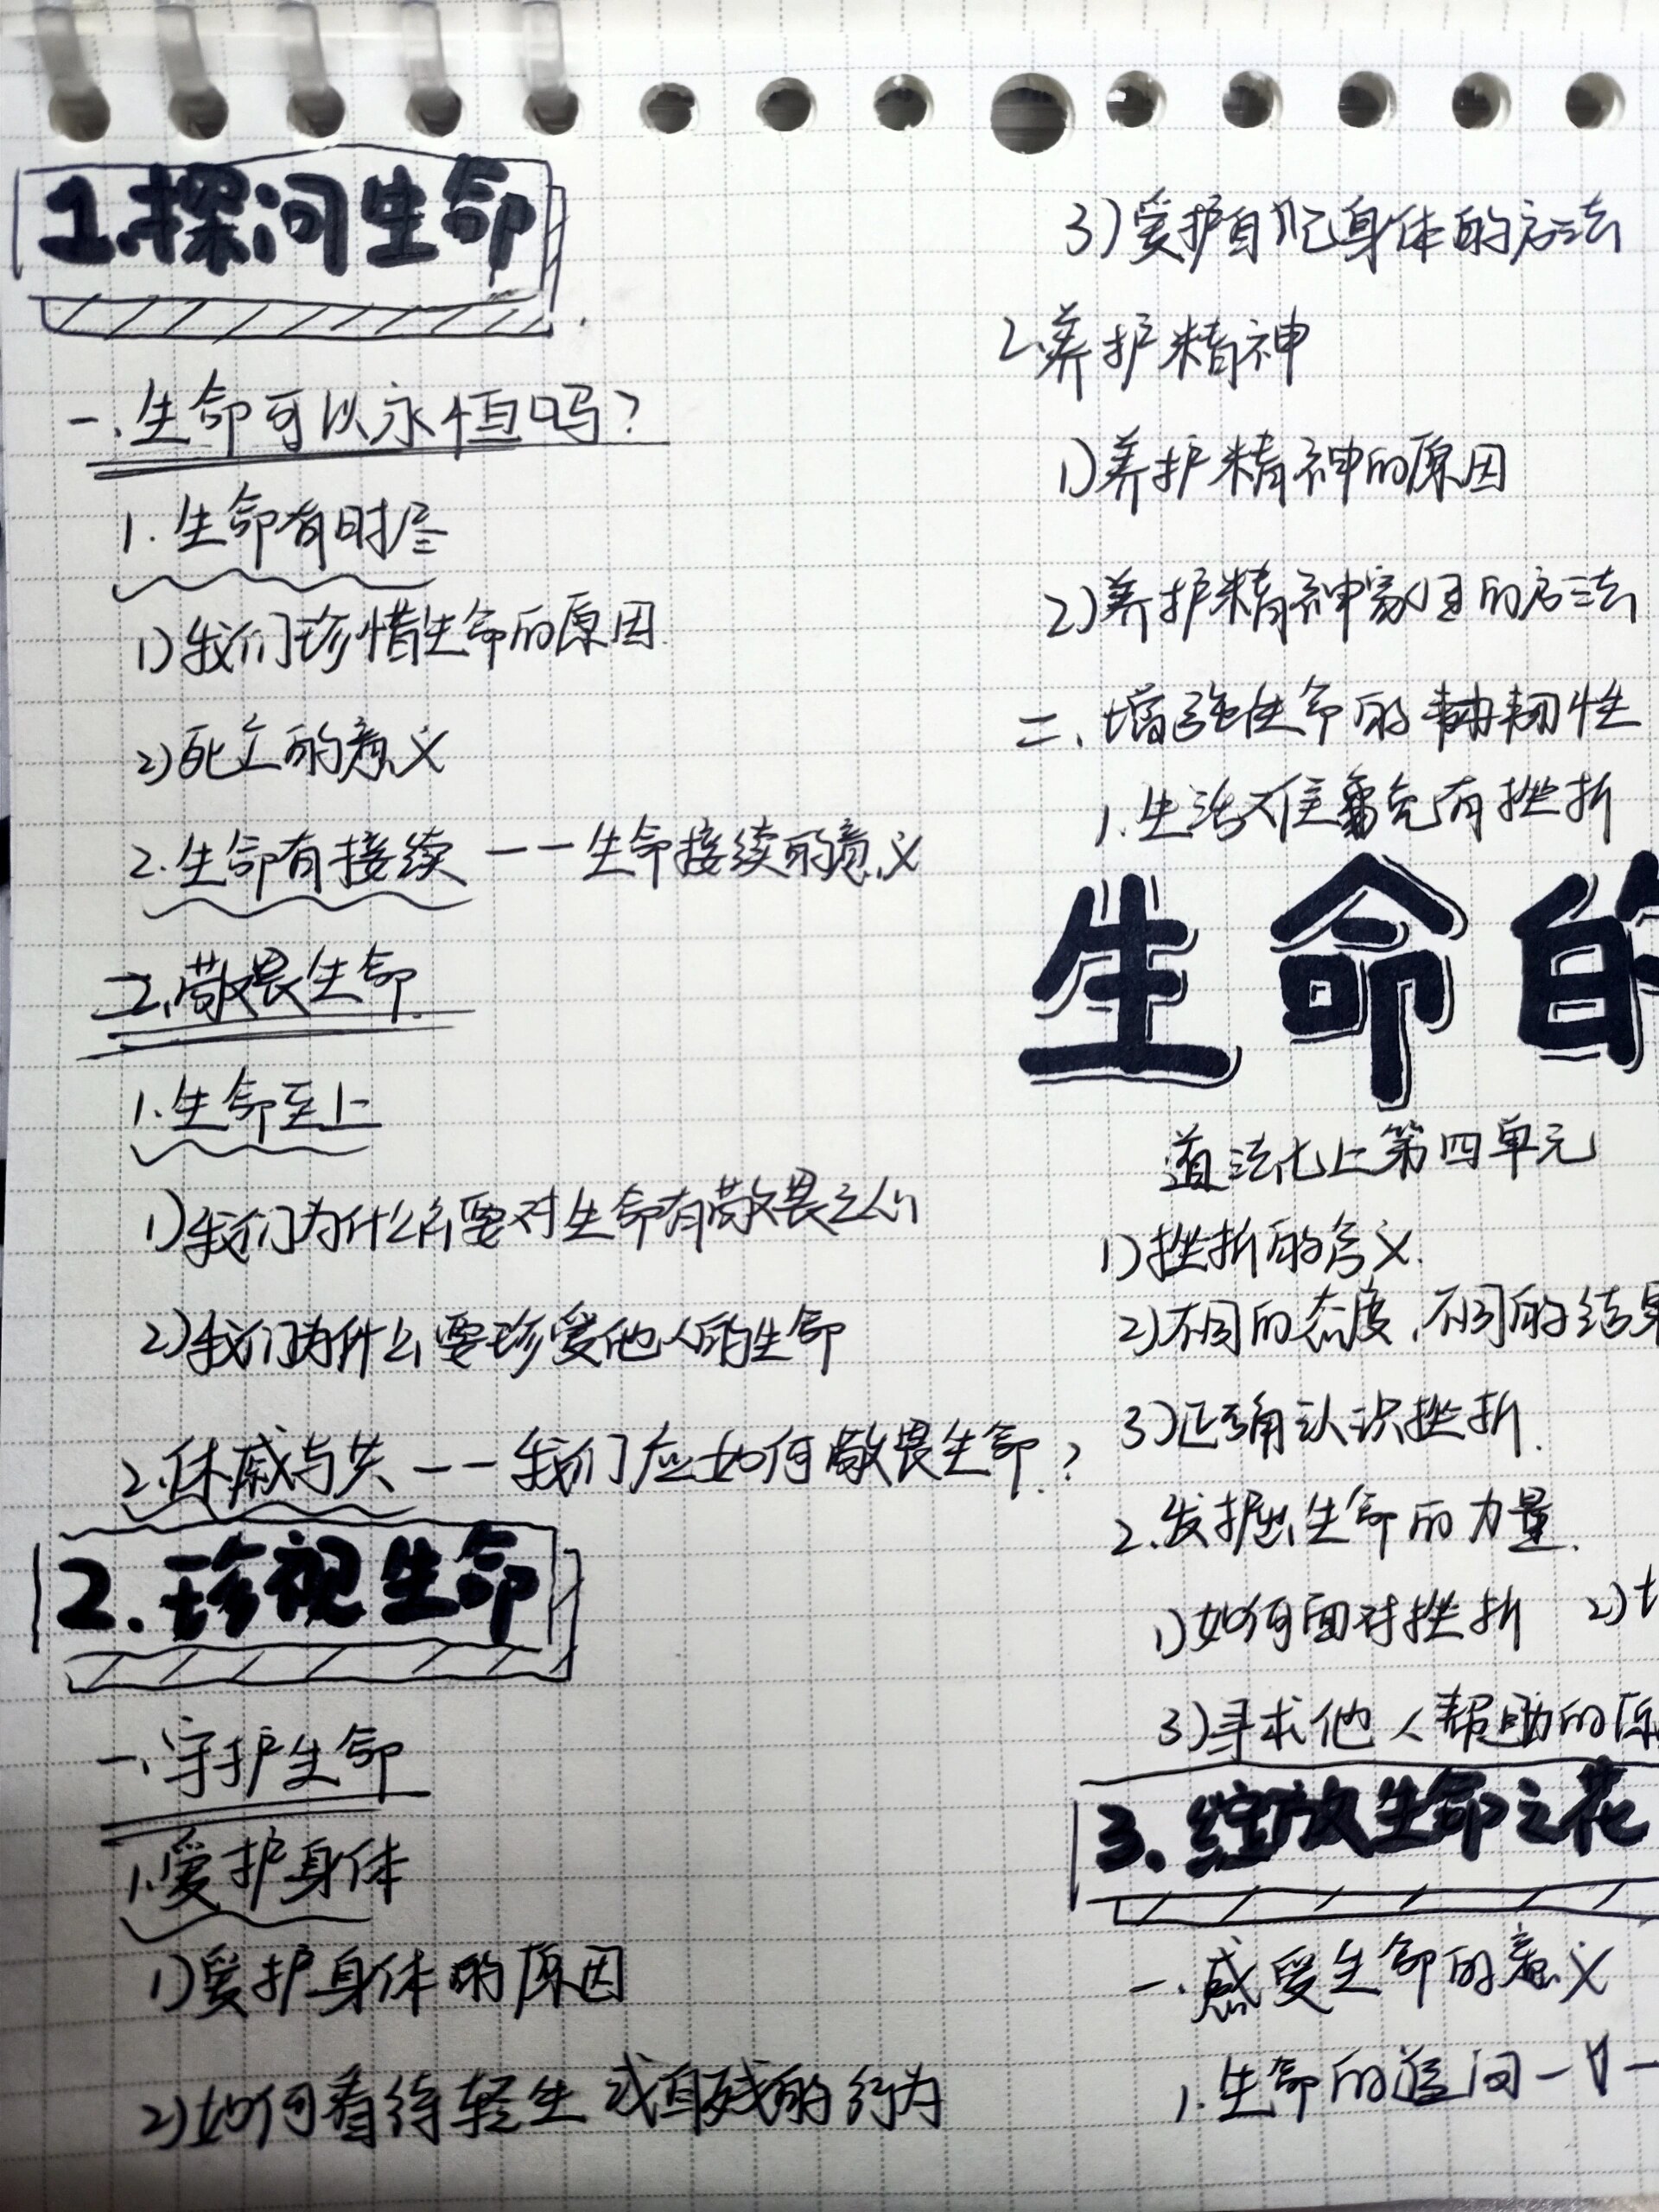 1.探问生命
一.生命可以永恒吗?
1.生命有时尽
1)我们珍惜生命的原因.
2)死亡的意义
2.生命有接续——生命接续的意义
二.敬畏生命.
1.生命至上
1)我们为什么需要对生命有敬畏之心
2)我们为什么要珍爱他人的生命
2.休戚与共——我们应如何敬畏生命?
2.珍视生命
一.守护生命
1.爱护身体
1)爱护身体的原因
2)如何看待轻生或自残的行为
3)爱护自己身体的方法
2.养护精神
1)养护精神的原因
2)养护精神家园的方法
二.增强生命的韧性
1.生活难免有挫折
生命的
道法七上第四单元
1)挫折的含义.
2)不同的态度,不同的结果
3)正确认识挫折.
2.发掘生命的力量.
1)如何面对挫折 2)
3)寻求他人帮助的原
3.绽放生命之花
一.感受生命的意义
1.生命的追问一